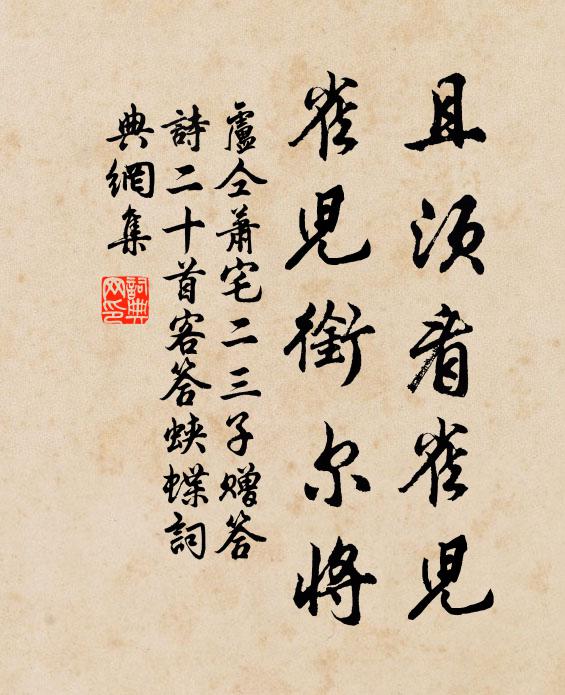 且須看雀兒
雀兒銜尔將
盧仝蕭宅二三子贈答
詩二十首客答蛺蝶詞
典網集
詞典
网印